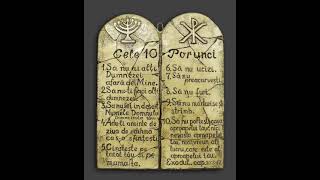 Cele 10 Porunci
1. Să nu ai alți
Dumnezei
afară de Mine.
2. Să nu-ți faci alți
dumnezei.
3. Să nu iei în deșert
Numele Domnului
4. Adu-ți aminte de
ziua de odihnă
ca s-o sfințești
5. Cinstește pe
tatăl tău și pe
mama ta.
6. Să nu ucizi.
7. Să nu
preacurvești.
8. Să nu furi.
9. Să nu mărturisești
strîmb.
10. Să nu poftești casa
aproapelui tău, nici
nevasta aproapelui
tău, nici
aproapelui tău.
Exodul, cap.